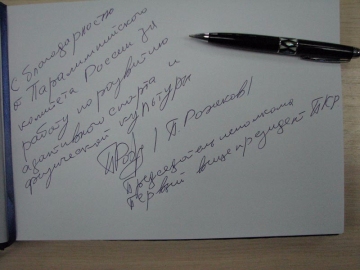 С благодарностью
от Паралимпийского
комитета России за
работу по развитию
адаптивного спорта и
физической культуры
/ П Рожков /
Председатель исполкома
Первый вице президент ПКР